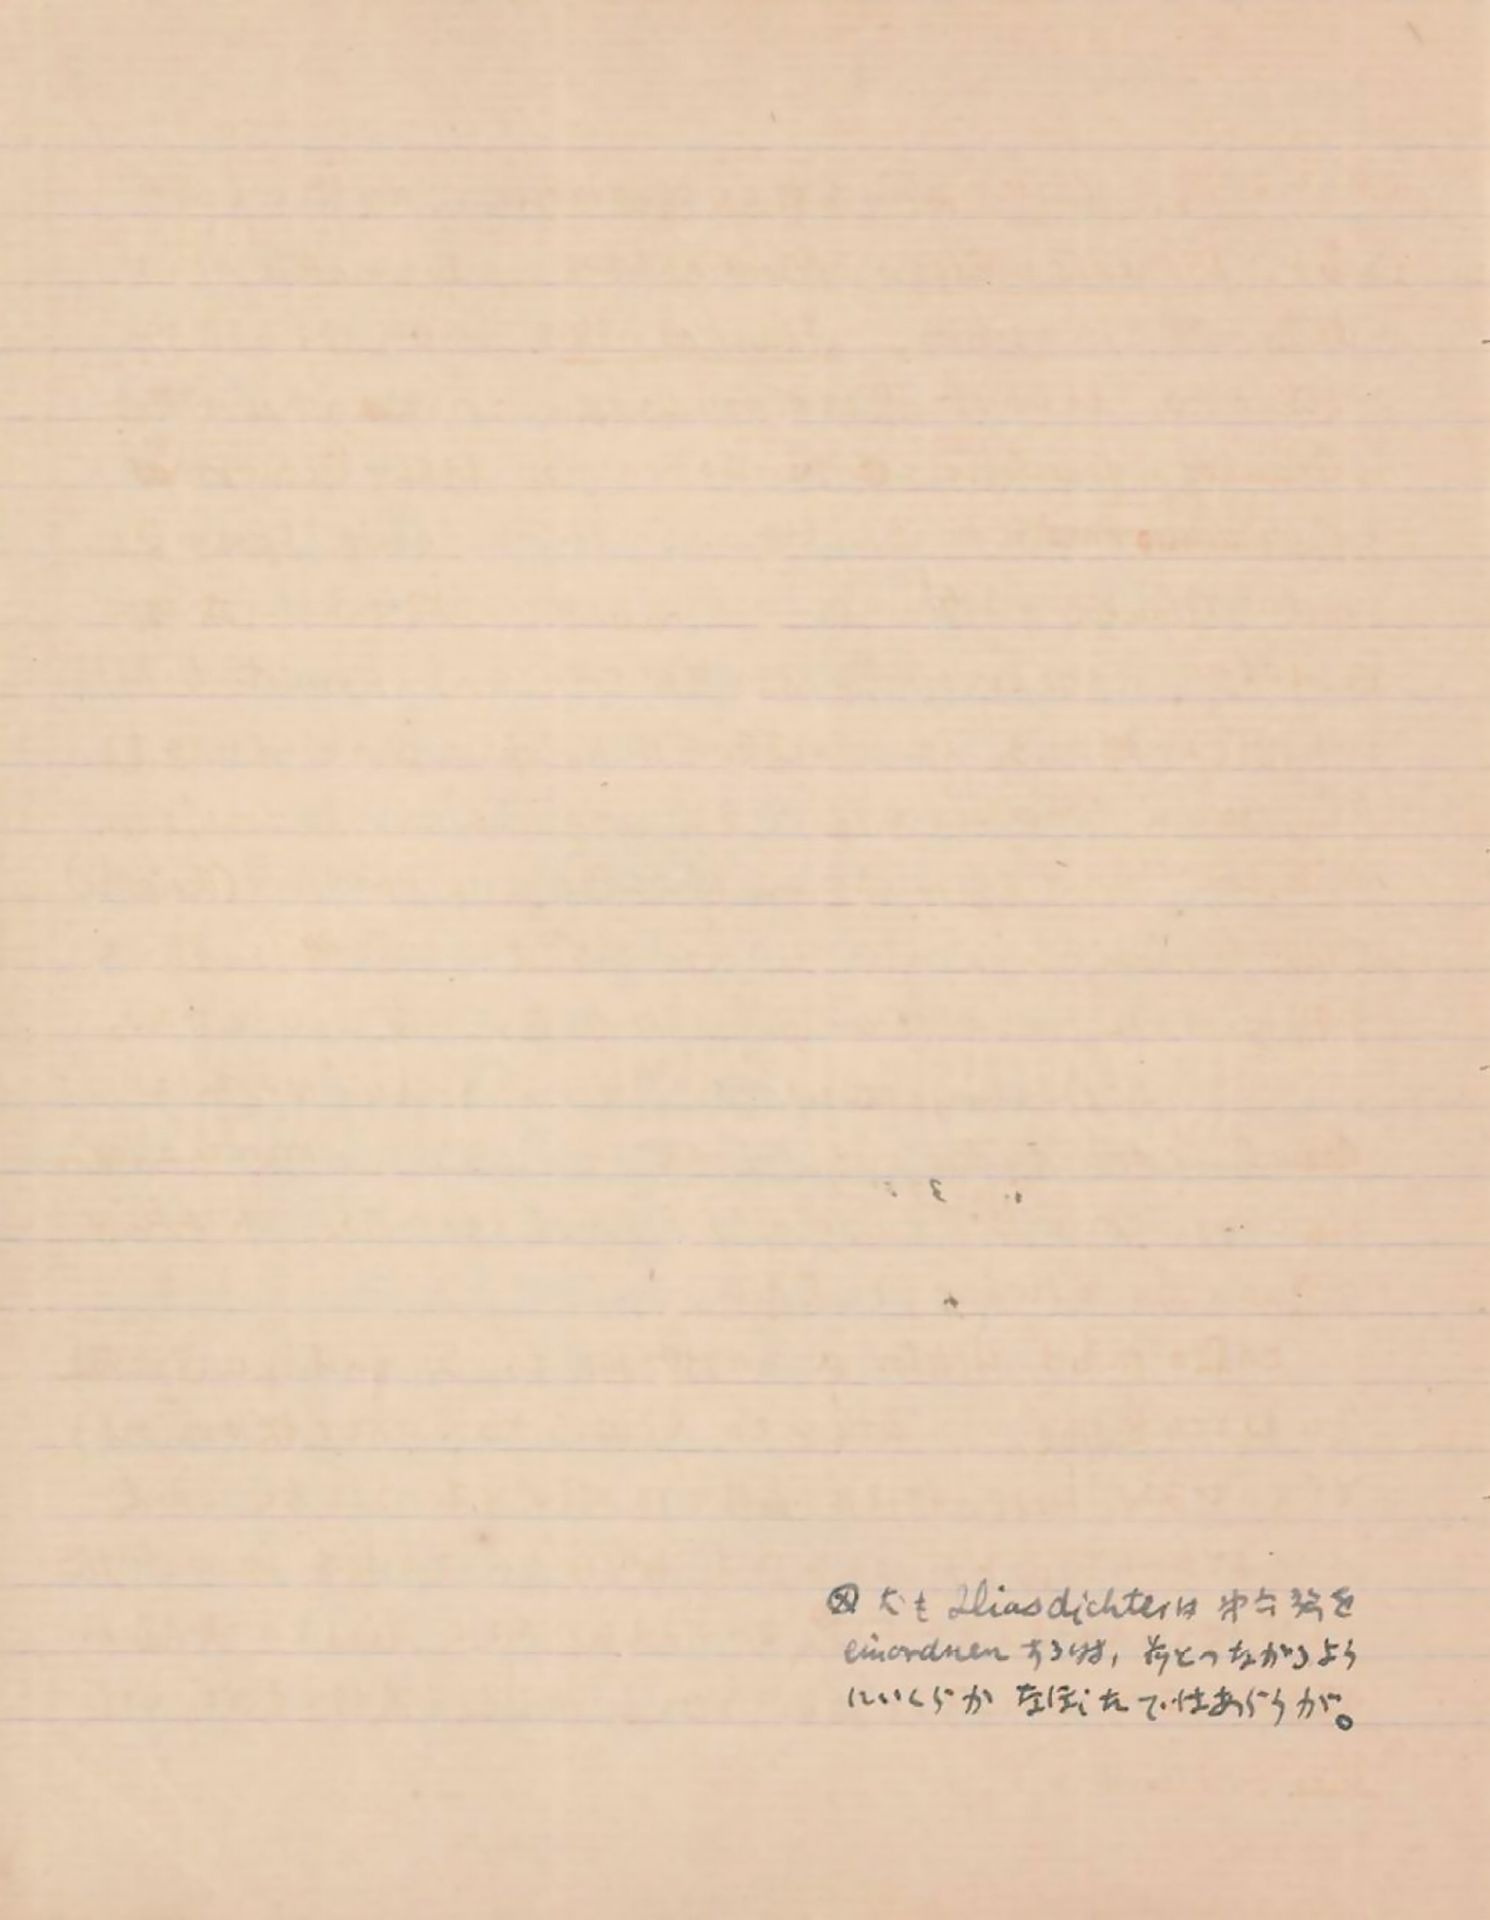 ⓧ 尤も Iliasdichterは 第六歌を
einordnen する時, 前とつながるよう
にいくらか なほしたではあらうが。